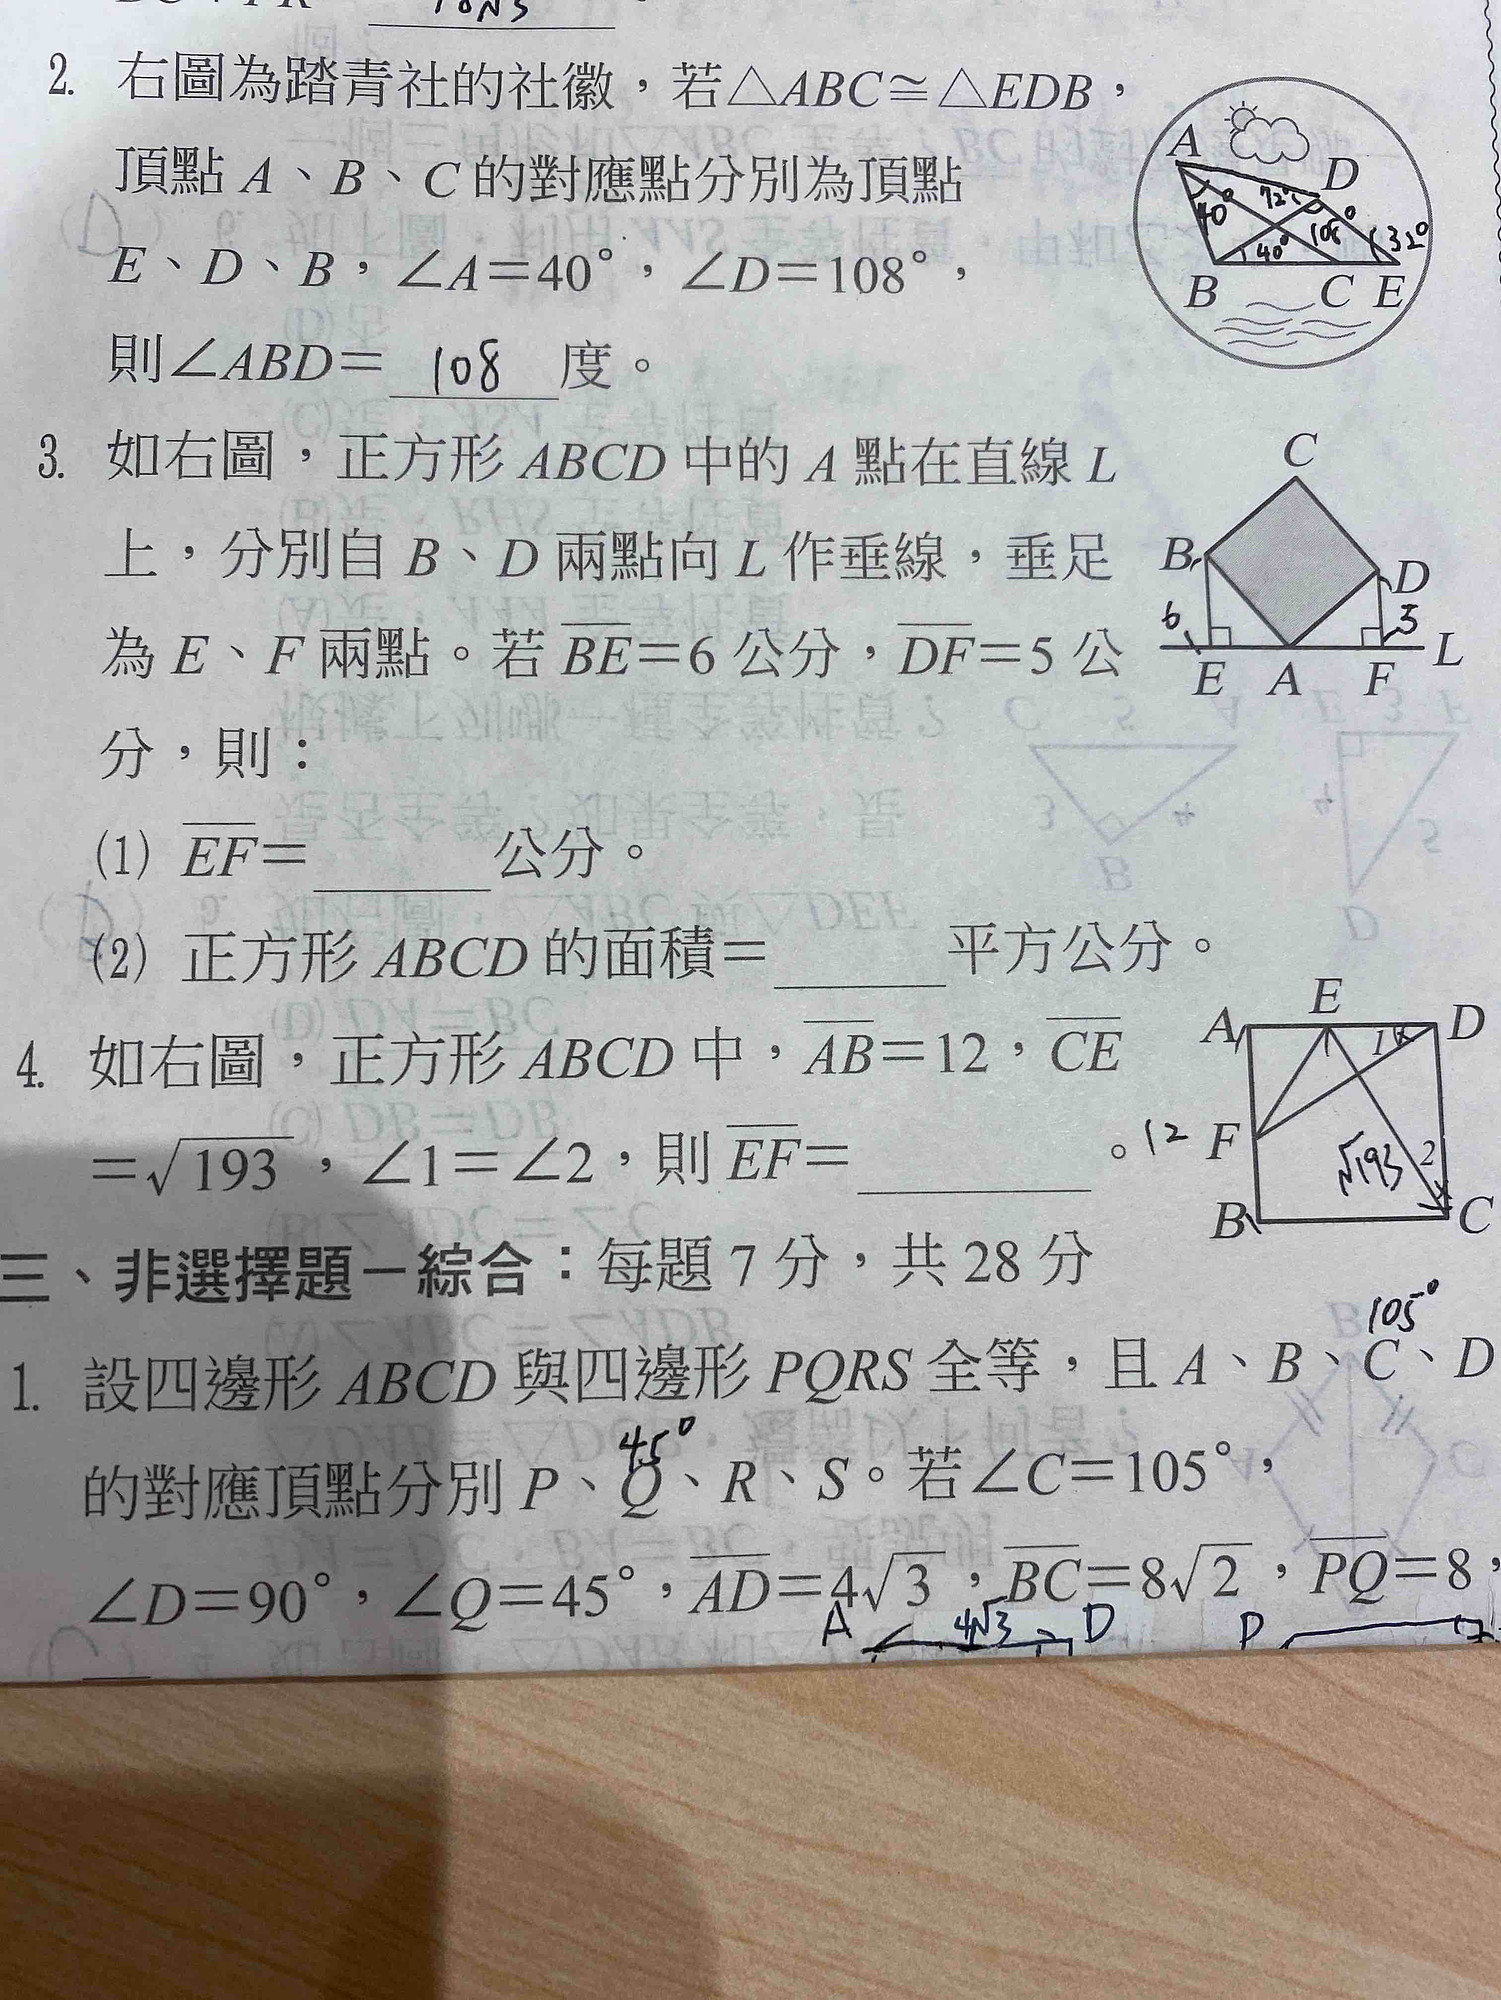 10√3
2. 右圖為踏青社的社徽，若△ABC≅△EDB，
頂點 A、B、C 的對應點分別為頂點
E、D、B，∠A＝40°，∠D＝108°，
則∠ABD＝ 108 度。
A D 40° 72° 108° 32° 40° B C E
3. 如右圖，正方形 ABCD 中的 A 點在直線 L
上，分別自 B、D 兩點向 L 作垂線，垂足
為 E、F 兩點。若 BE＝6 公分，DF＝5 公
分，則：
C B D 6 5 L E A F
(1) EF＝______公分。
(2) 正方形 ABCD 的面積＝______平方公分。
4. 如右圖，正方形 ABCD 中，AB＝12，CE
＝√193，∠1＝∠2，則 EF＝________。
A E D 1 12 F √193 2 B C
三、非選擇題－綜合：每題 7 分，共 28 分
105°
1. 設四邊形 ABCD 與四邊形 PQRS 全等，且 A、B、C、D
45°
的對應頂點分別 P、Q、R、S。若∠C＝105°，
∠D＝90°，∠Q＝45°，AD＝4√3，BC＝8√2，PQ＝8，
A 4√3 D P